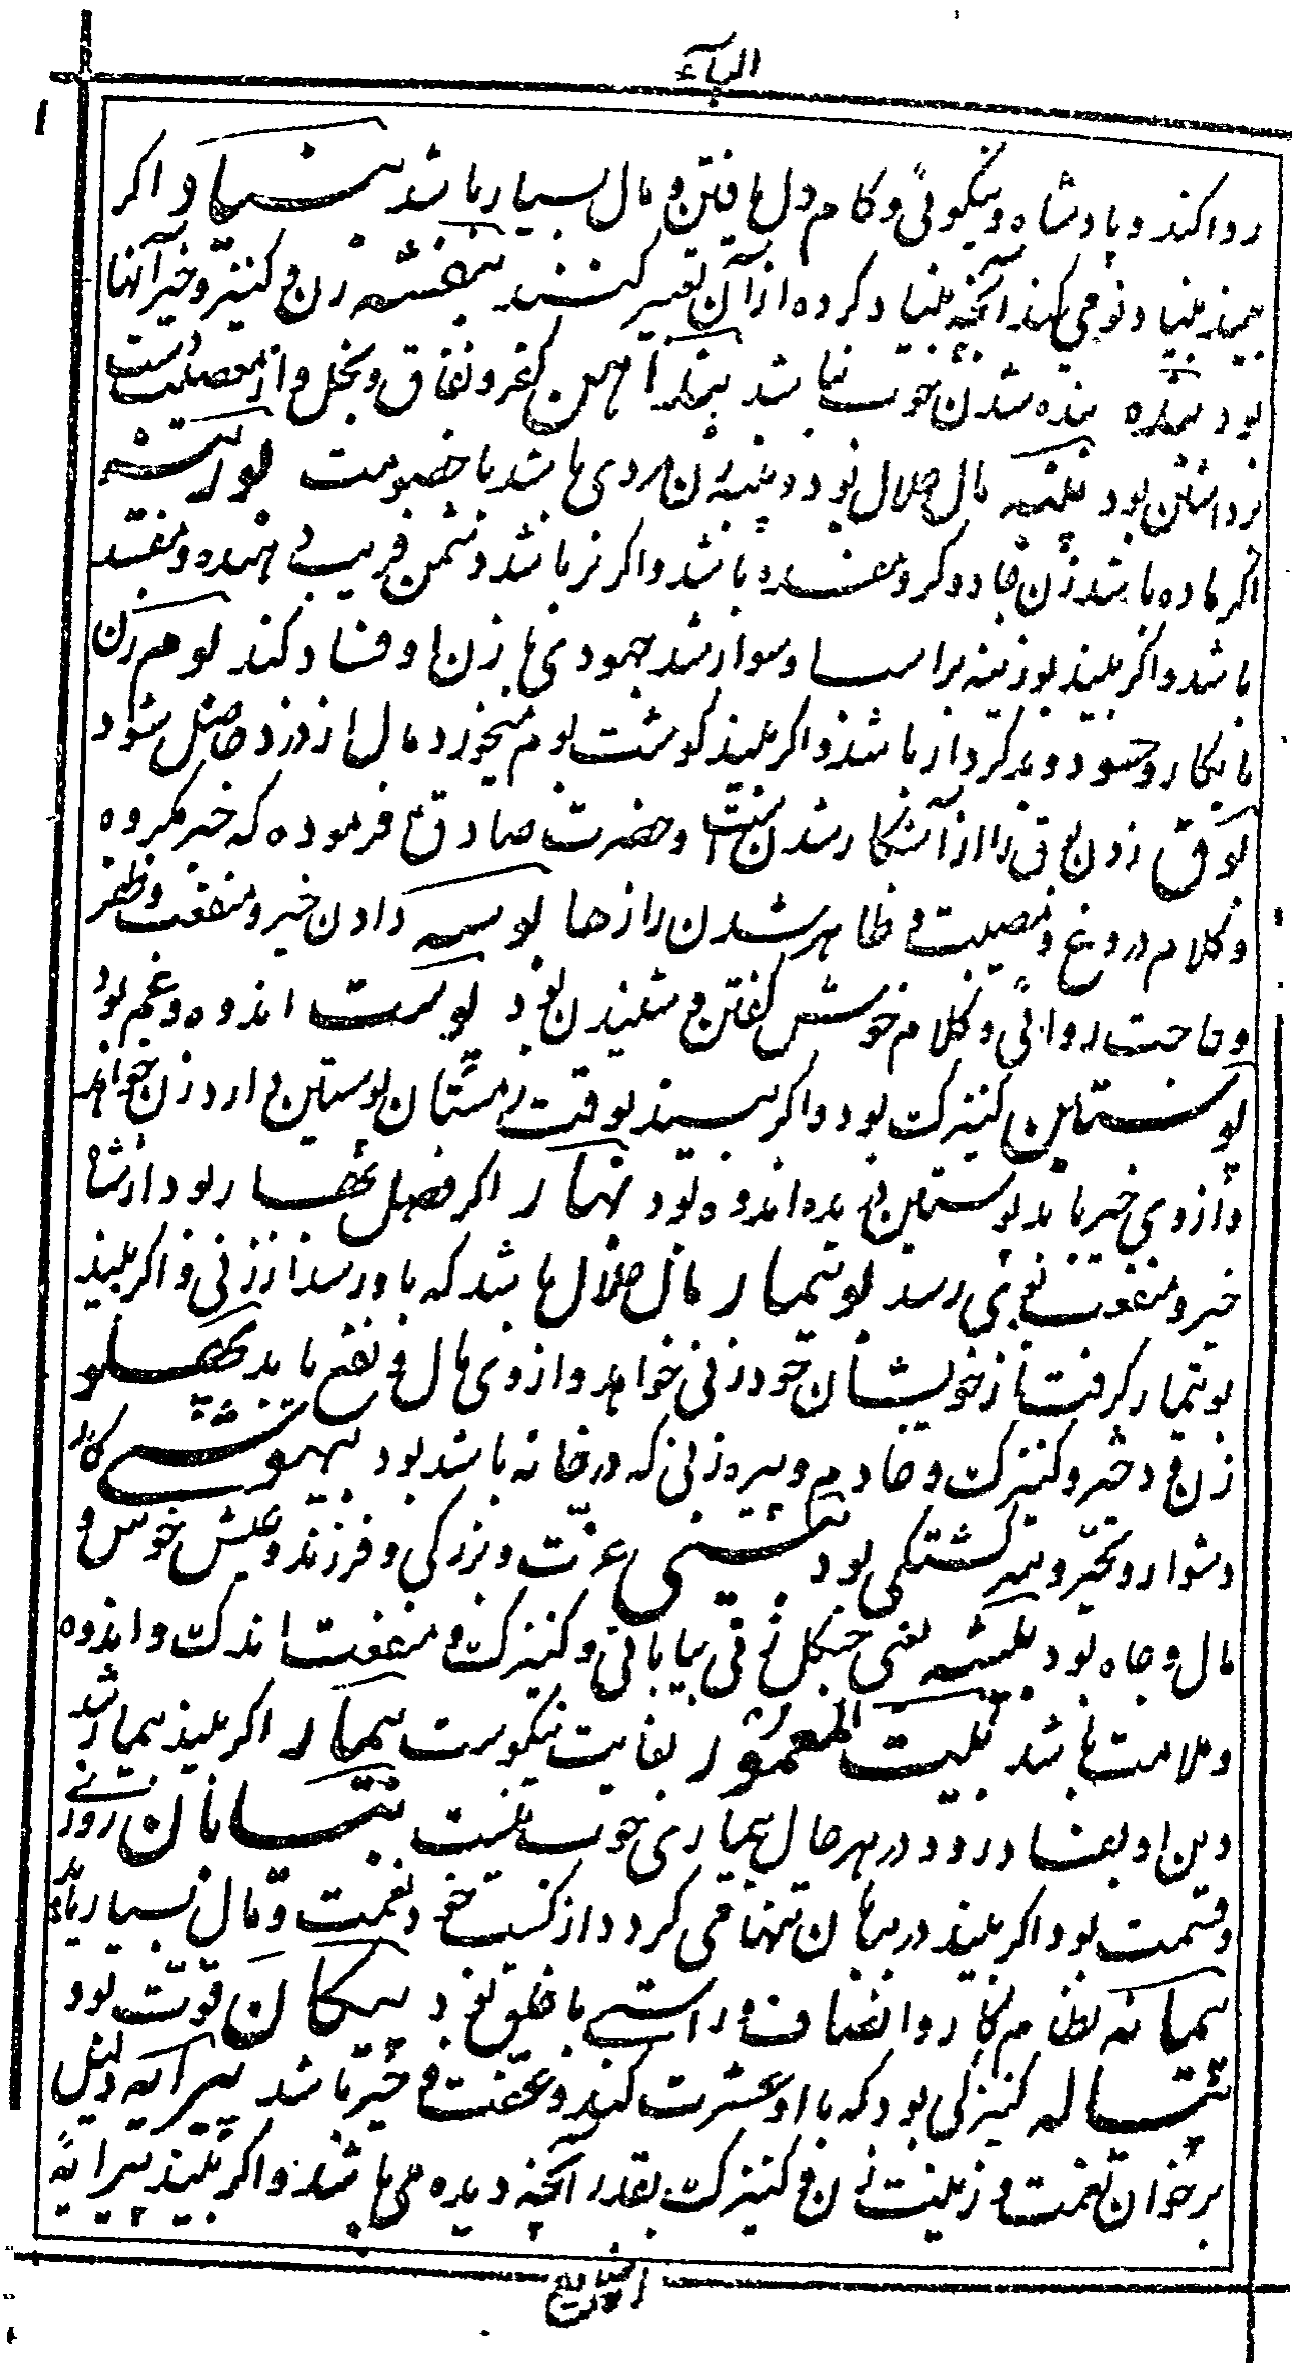 الباء
روا کند و پادشاه و نیکوئی و کام دل یافتن و مال بسیار باشد بنیاد اکر
بیند بنیاد نومی کند آنچه بنیاد کرده از آن تعبیر کنند بنفشه زن و کنیز و خیر آنها
بود بنده بنده شدن خوب نباشد بند آهن کفر و نفاق و بخل و از معصیت دست
برداشتن بود پنبه مال حلال بود و پنبه زن مردی باشد با خصومت بوزینه
اکر ماده باشد زن جادوکر و مفسده باشد و اکر نر باشد دشمن فریب دهنده و مفسد
باشد و اکر بیند بوزینه بر اسب او سوار شد جهودی با زن او فساد کند بوم زن
نابکار و حسود و بدکردار باشد و اکر بیند کوشت بوم میخورد مال از دزد حاصل شود
بوق زدن بوق راز آشکار شدن است و حضرت صادق ع فرموده که خبر مکروه
و کلام دروغ و مصیبت و ظاهر شدن رازها بوسه دادن خیر و منفعت و ظفر
و حاجت روائی و کلام خوش کفتن و شنیدن بود پوست اندوه و غم بود
پوستین کنیزک بود و اکر بیند بوقت زمستان پوستین دارد زن خواهد
و از وی خیر یابد پوستین دریده اندوه بود بهار اکر فصل بهار بود از شاه
خیر و منفعت بوی رسد بوتیمار مال حلال باشد که باو رسد از زنی و اکر بیند
بوتیمار کرفت از خویشان خود زنی خواهد و از وی مال و نفع یابد پهلو
زن و دختر و کنیزک و خادم و پیره زنی که در خانه باشد بود بیهوشی کار
دشوار و تحیر و سرکشتکی بود بینی عزت و بزرکی و فرزند و عیش خوش و
مال و جاه بود بیشه یعنی جنکل زنی بیابانی و کنیزک و منفعت اندک و اندوه
و ملامت باشد بیت المعمور بغایت نیکوست بیمار اکر بیند بیمار شد
دین او بفساد رود و در هر حال بیماری خوب نیست بیابان روزی
و قسمت بود اکر بیند در بیابان تنها می کردد از کسب خود نعمت و مال بسیار یابد
پیمانه نظام کار و انصاف و راستی با خلق بود پیکان قوت بود
پیاله کنیزکی بود که با او عشرت کند و عفت و خیر باشد پیرایه دلیل
بر خوان نعمت و زینت زن و کنیزک بقدر آنچه دیده می باشد و اکر بیند پیرایه